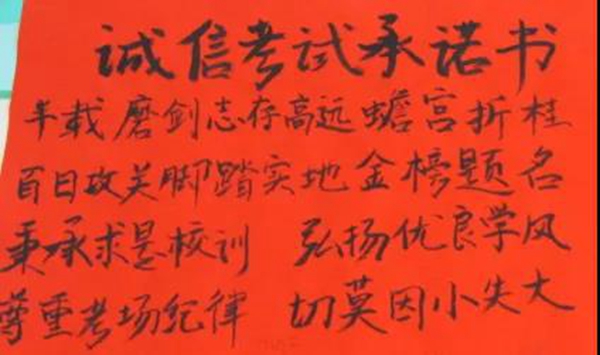 诚信考试承诺书
年载磨剑志存高远蟾宫折桂
百日攻关脚踏实地金榜题名
秉承求是校训 弘扬优良学风
尊重考场纪律 切莫因小失大